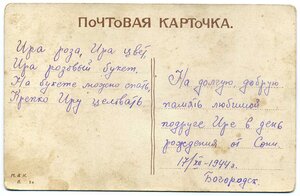 ПОЧТОВАЯ КАРТОЧКА.
Ира роза, Ира цвет,
Ира розовый букет.
На букете можно спать,
Крепко Иру целовать.
На долгую, добрую
память любимой
подруге Ире в день
рождения от Сони
17/XI-1944 г.
Богородск.